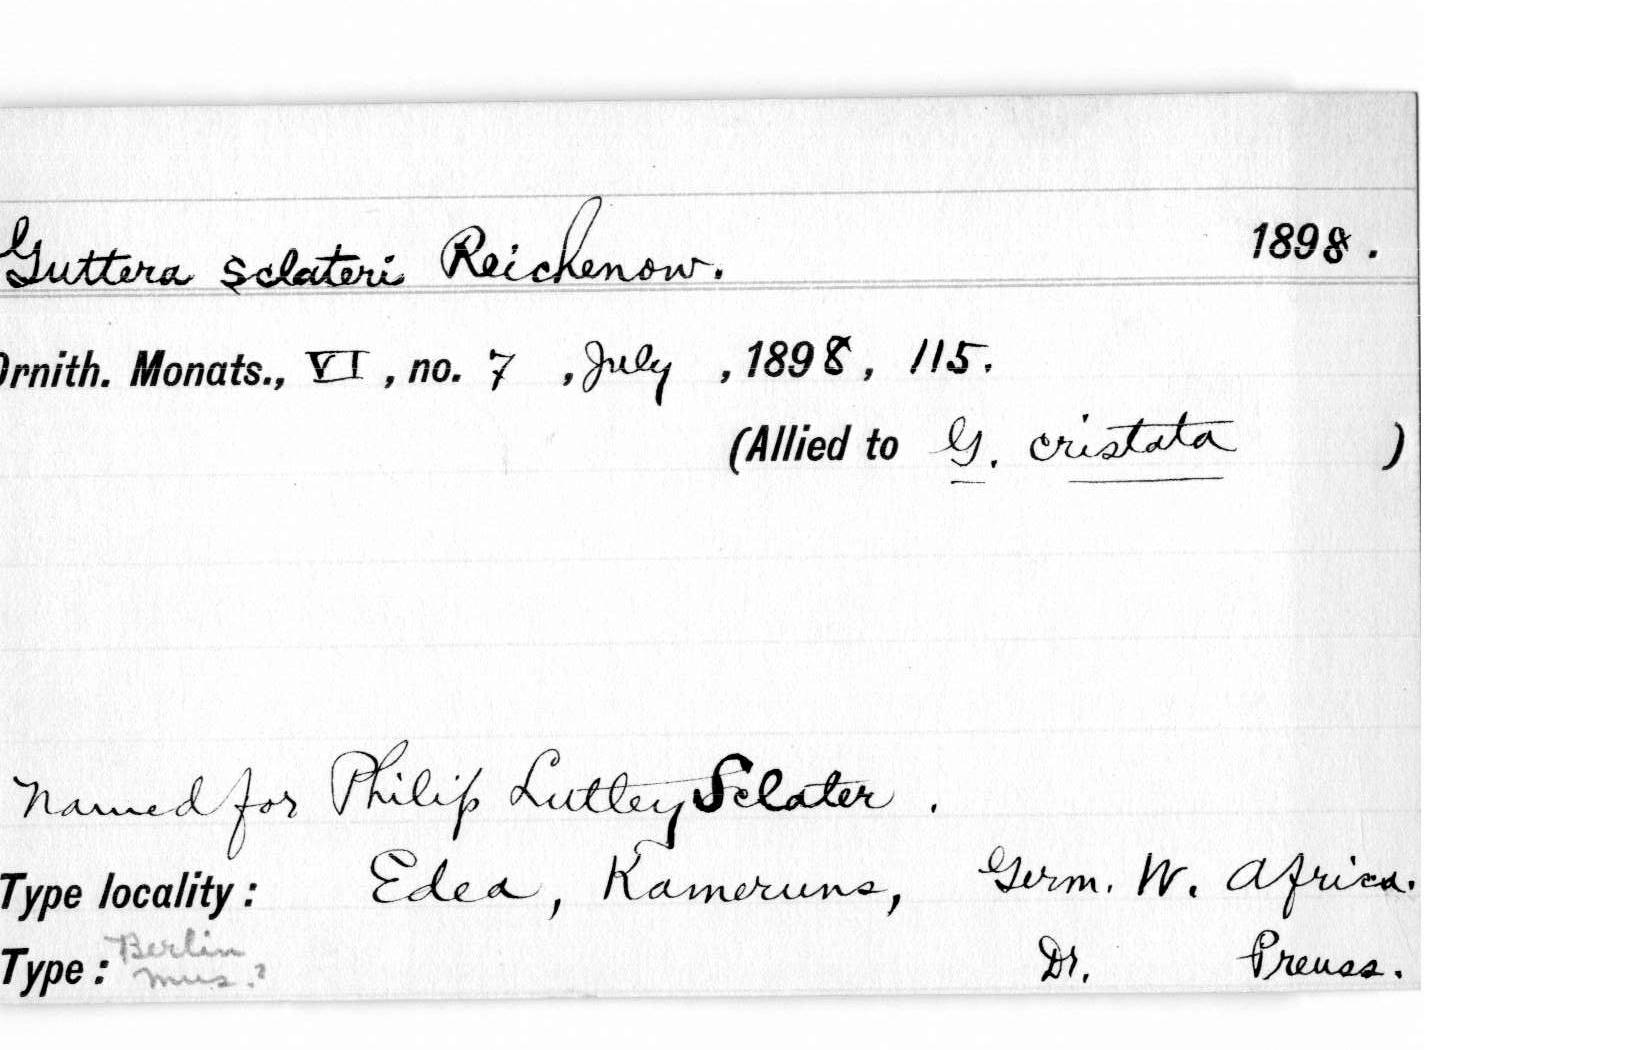 Guttera sclateri Reichenow. 1898.
Ornith. Monats., VI, no. 7, July, 1898, 115.
(Allied to G. cristata)
Named for Philip Lutley Sclater.
Type locality: Edea, Kameruns, Germ. W. Africa.
Type: Berlin Mus.? Dr. Preuss.